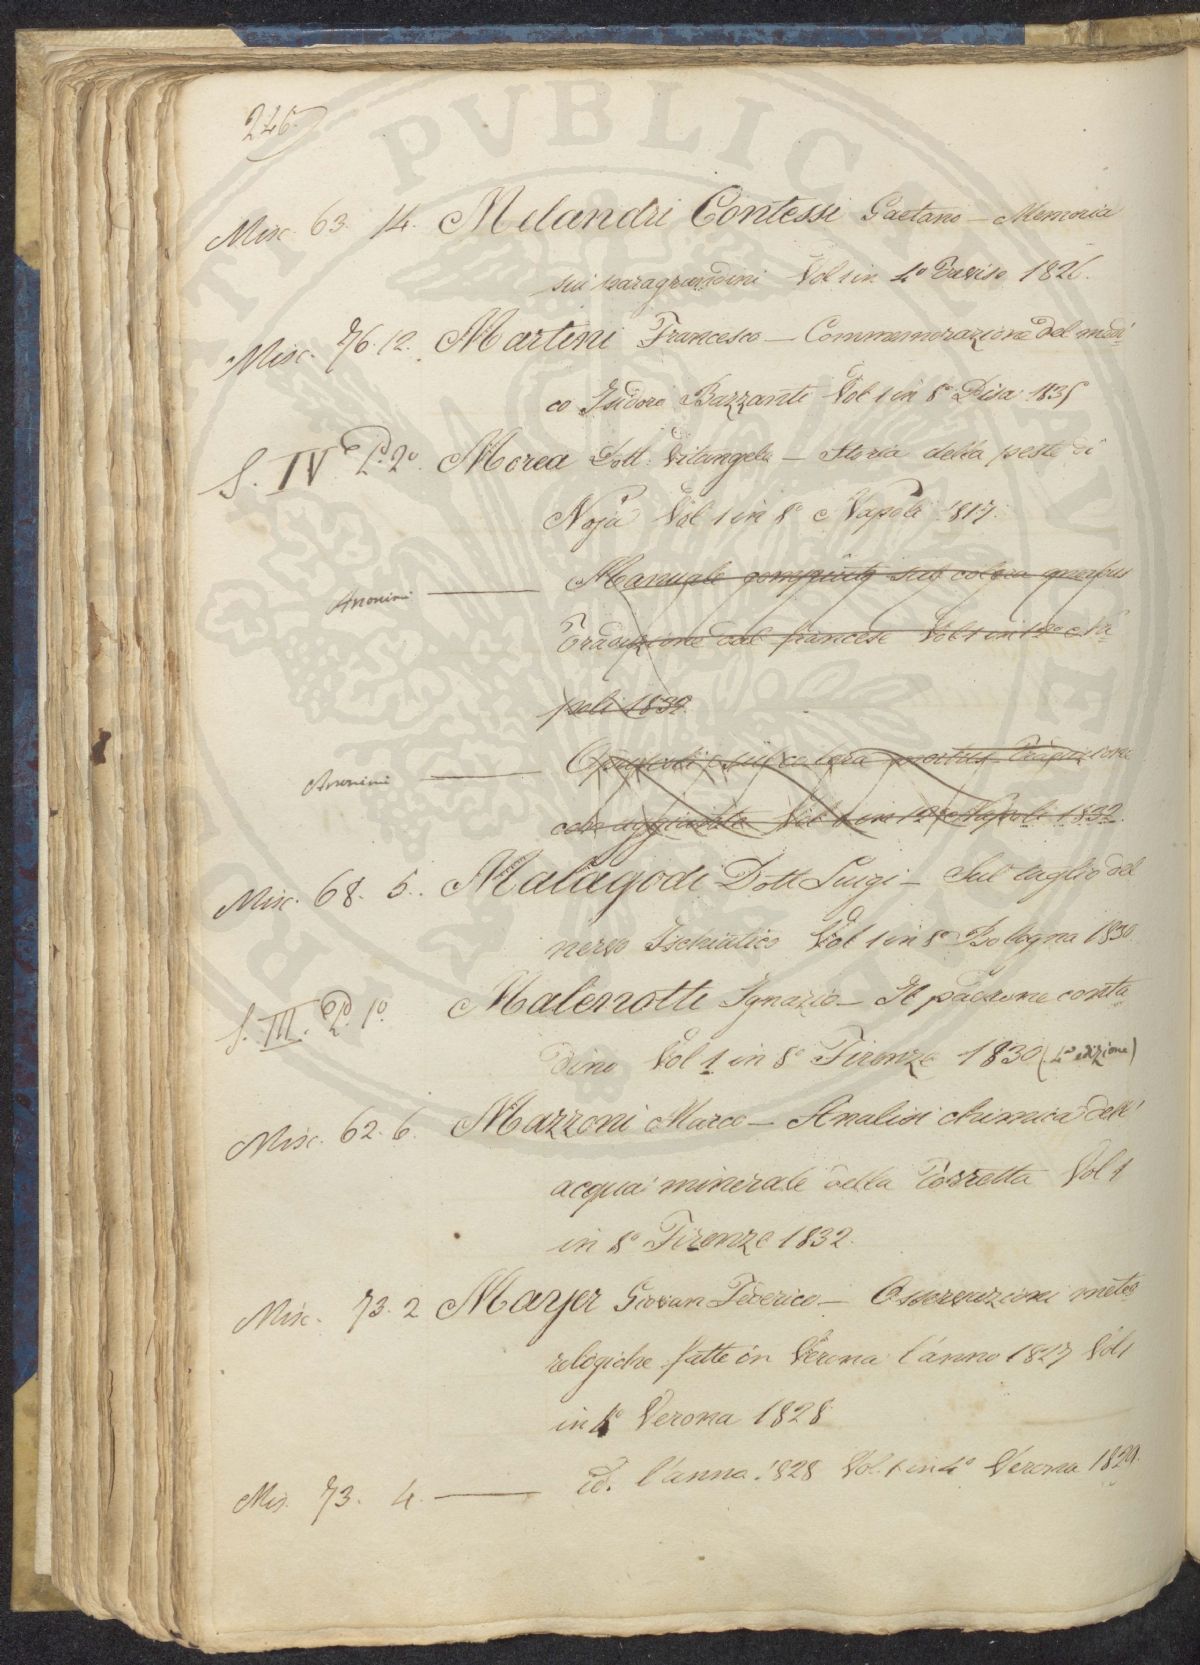 246
Misc. 63. 14. Melandri Contessi Gaetano – Memoria
sui paragrandini Vol 1 in 4º Treviso 1826.
Misc. 76. 12. Martini Francesco – Commemorazione del medi
co Isidoro Bazzanti Vol 1 in 8º Pisa 1835
S. IV P. 2º Morea Dott. Vitangelo – Storia della peste di
Noja Vol 1 in 8º Napoli 1817.
Anonimi ——— Manuale sul colera morbus
Traduzione dal francese Vol 1 in Na
poli 1832
Anonimi ——— Opuscoli sul colera morbus Traduzione
con aggiunte Vol 1 in 12º Napoli 1832.
Misc. 68. 5. Malagodi Dott Luigi – Sul taglio del
nervo Ischiatico Vol 1 in 8º Bologna 1830
S. III. P. 1º Malenotti Ignazio – Il padrone conta
dino Vol 1 in 8º Firenze 1830 (2ª edizione)
Misc. 62. 6. Mazzoni Marco – Analisi chimica dell'
acqua minerale della Torretta Vol 1
in 8º Firenze 1832
Misc. 73. 2 Mayer Giovan Federico – Osservazioni meteo
rologiche fatte in Verona l'anno 1827 Vol 1
in 4º Verona 1828
Mis. 73. 4. ——— id. l'anno 1828 Vol. 1 in 4º Verona 1829.
PUBLICA